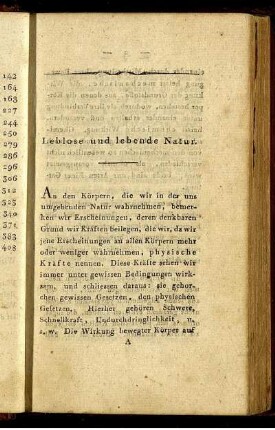 142
164
163
228
244
250
279
286
296
306
312
316
318
320
363
383
428
Leblose und lebende Natur.
An den Körpern, die wir in der uns
umgebenden Natur wahrnehmen, bemer-
ken wir Erscheinungen, deren denkbaren
Grund wir Kräften beilegen, die wir, da wir
jene Erscheinungen an allen Körpern mehr
oder weniger wahrnehmen, physische
Kräfte nennen. Diese Kräfte sehen wir
immer unter gewissen Bedingungen wirk-
sam, und schliessen daraus: sie gehor-
chen gewissen Gesetzen, den physischen
Gesetzen. Hierher gehören Schwere,
Schnellkraft, Undurchdringlichkeit, u.
s. w. Die Wirkung bewegter Körper auf
A